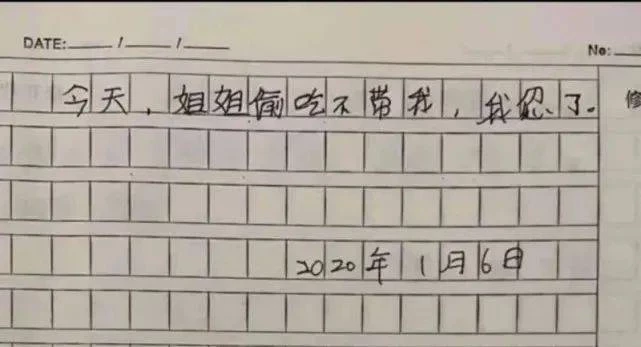 DATE: / /
No:
今天，姐姐偷吃不带我，我忍了。
2020年1月6日